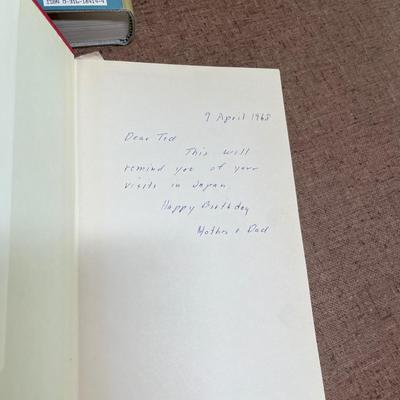 ISBN 0-316-18414-4
7 April 1968
Dear Ted
This will
remind you of your
visits in Japan.
Happy Birthday
Mother + Dad